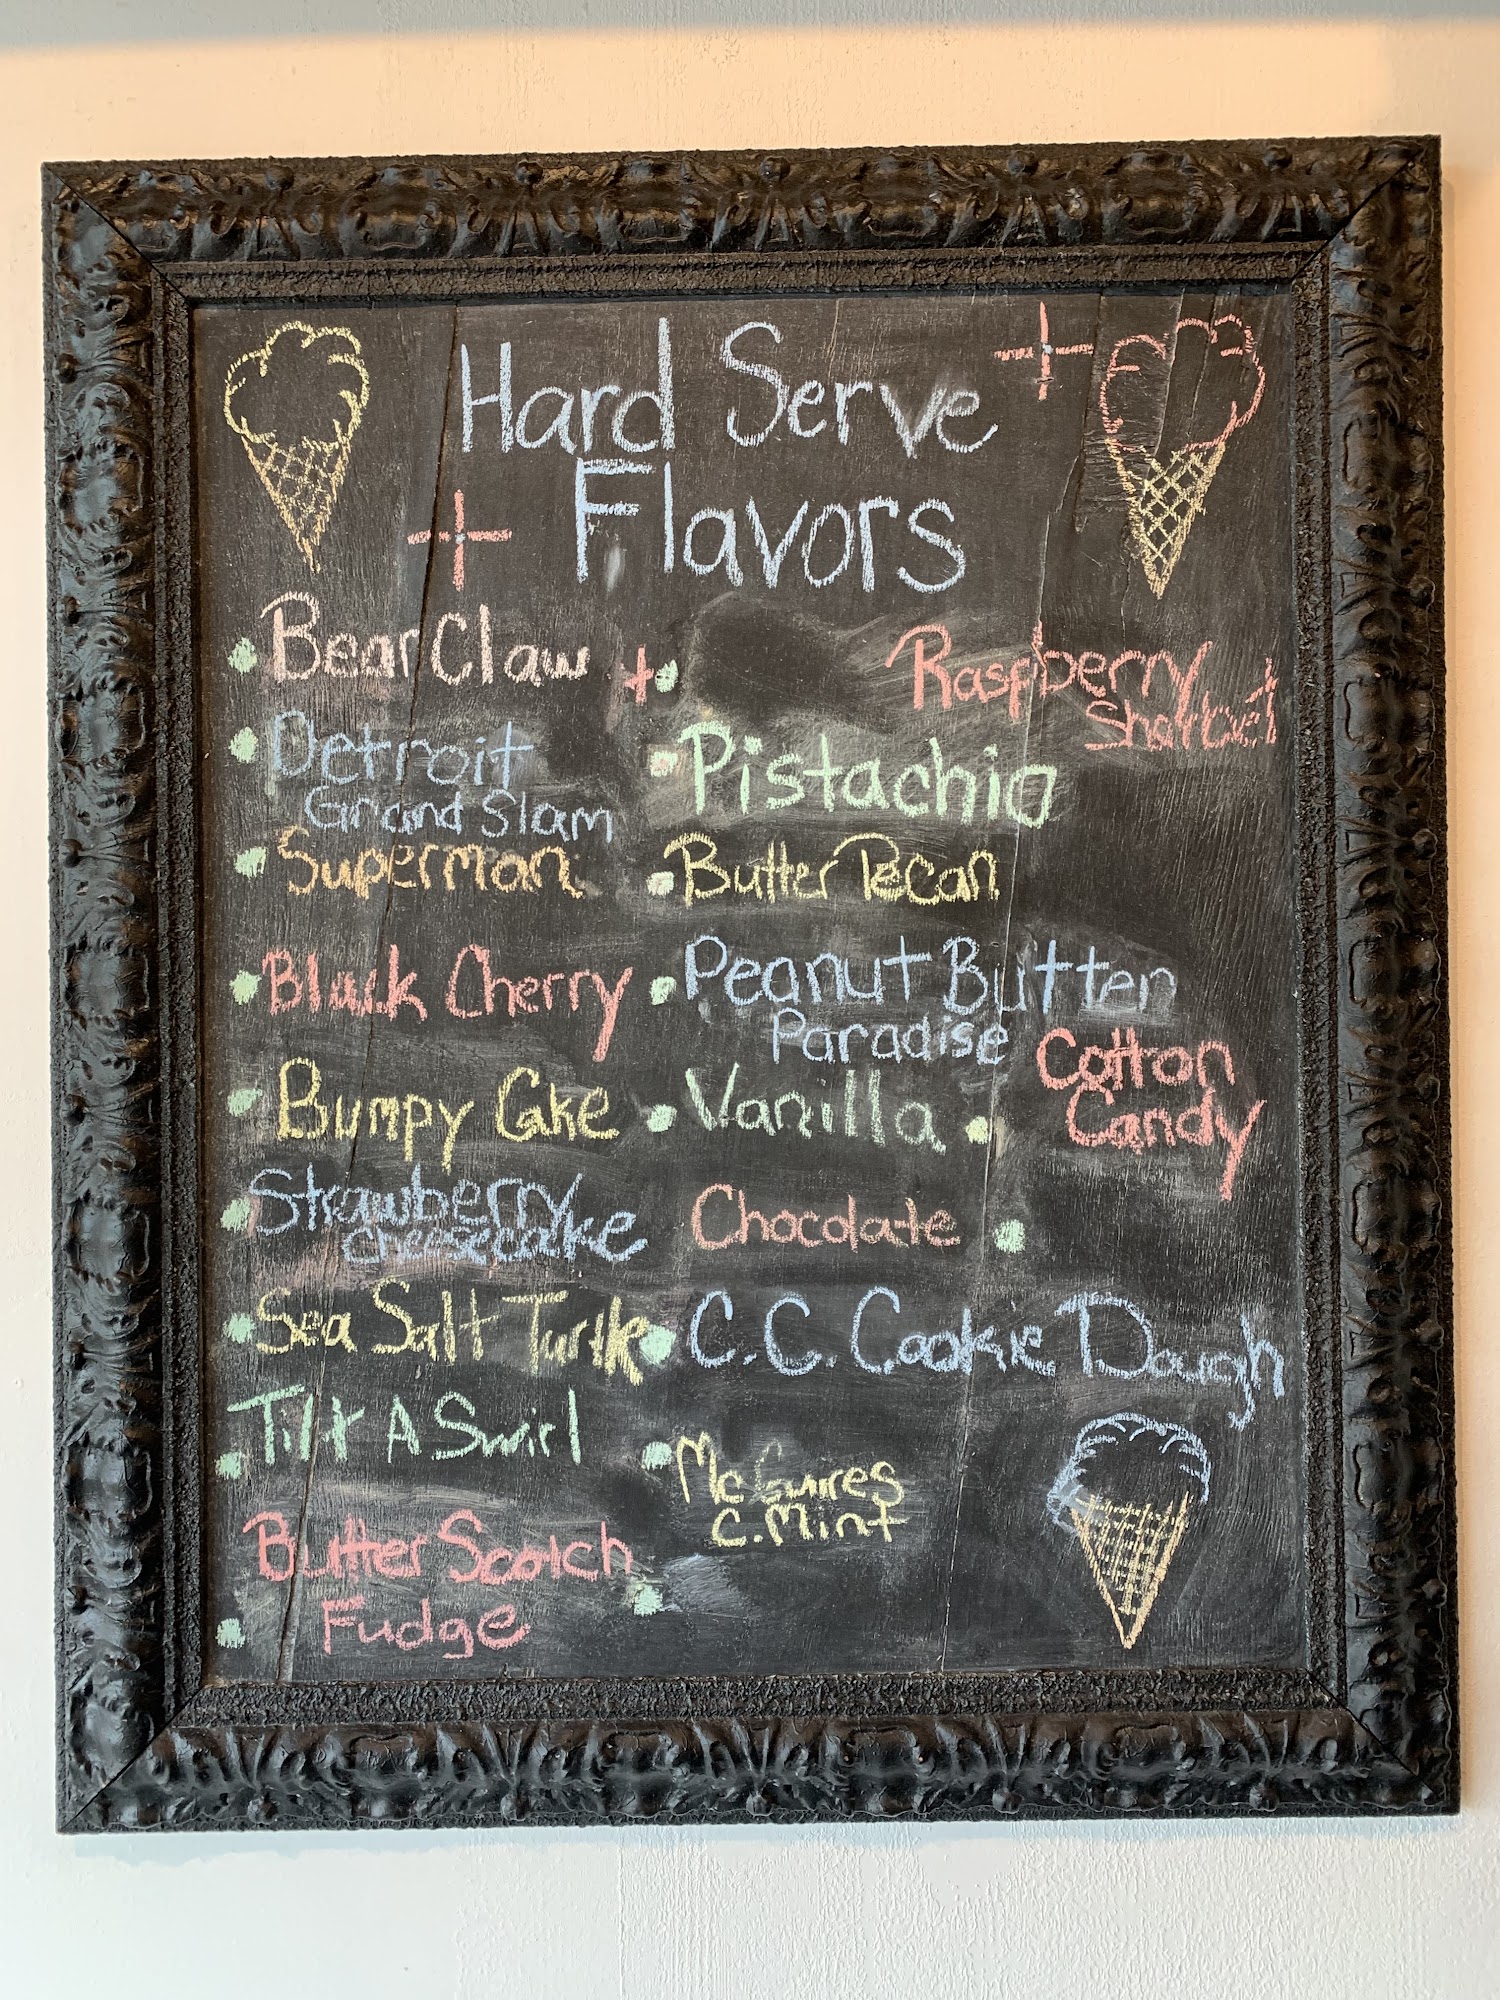 Hard Serve
Flavors
Bear Claw
Detroit
Grand Slam
Superman
Black Cherry
Bumpy Cake
Strawberry
Cheesecake
Sea Salt Turtle
Tilt A Swirl
Butter Scotch
Fudge
Raspberry
Sherbet
Pistachio
Butter Pecan
Peanut Butter
Paradise
Vanilla
Cotton
Candy
Chocolate
C.C. Cookie Dough
McGuires
C. Mint